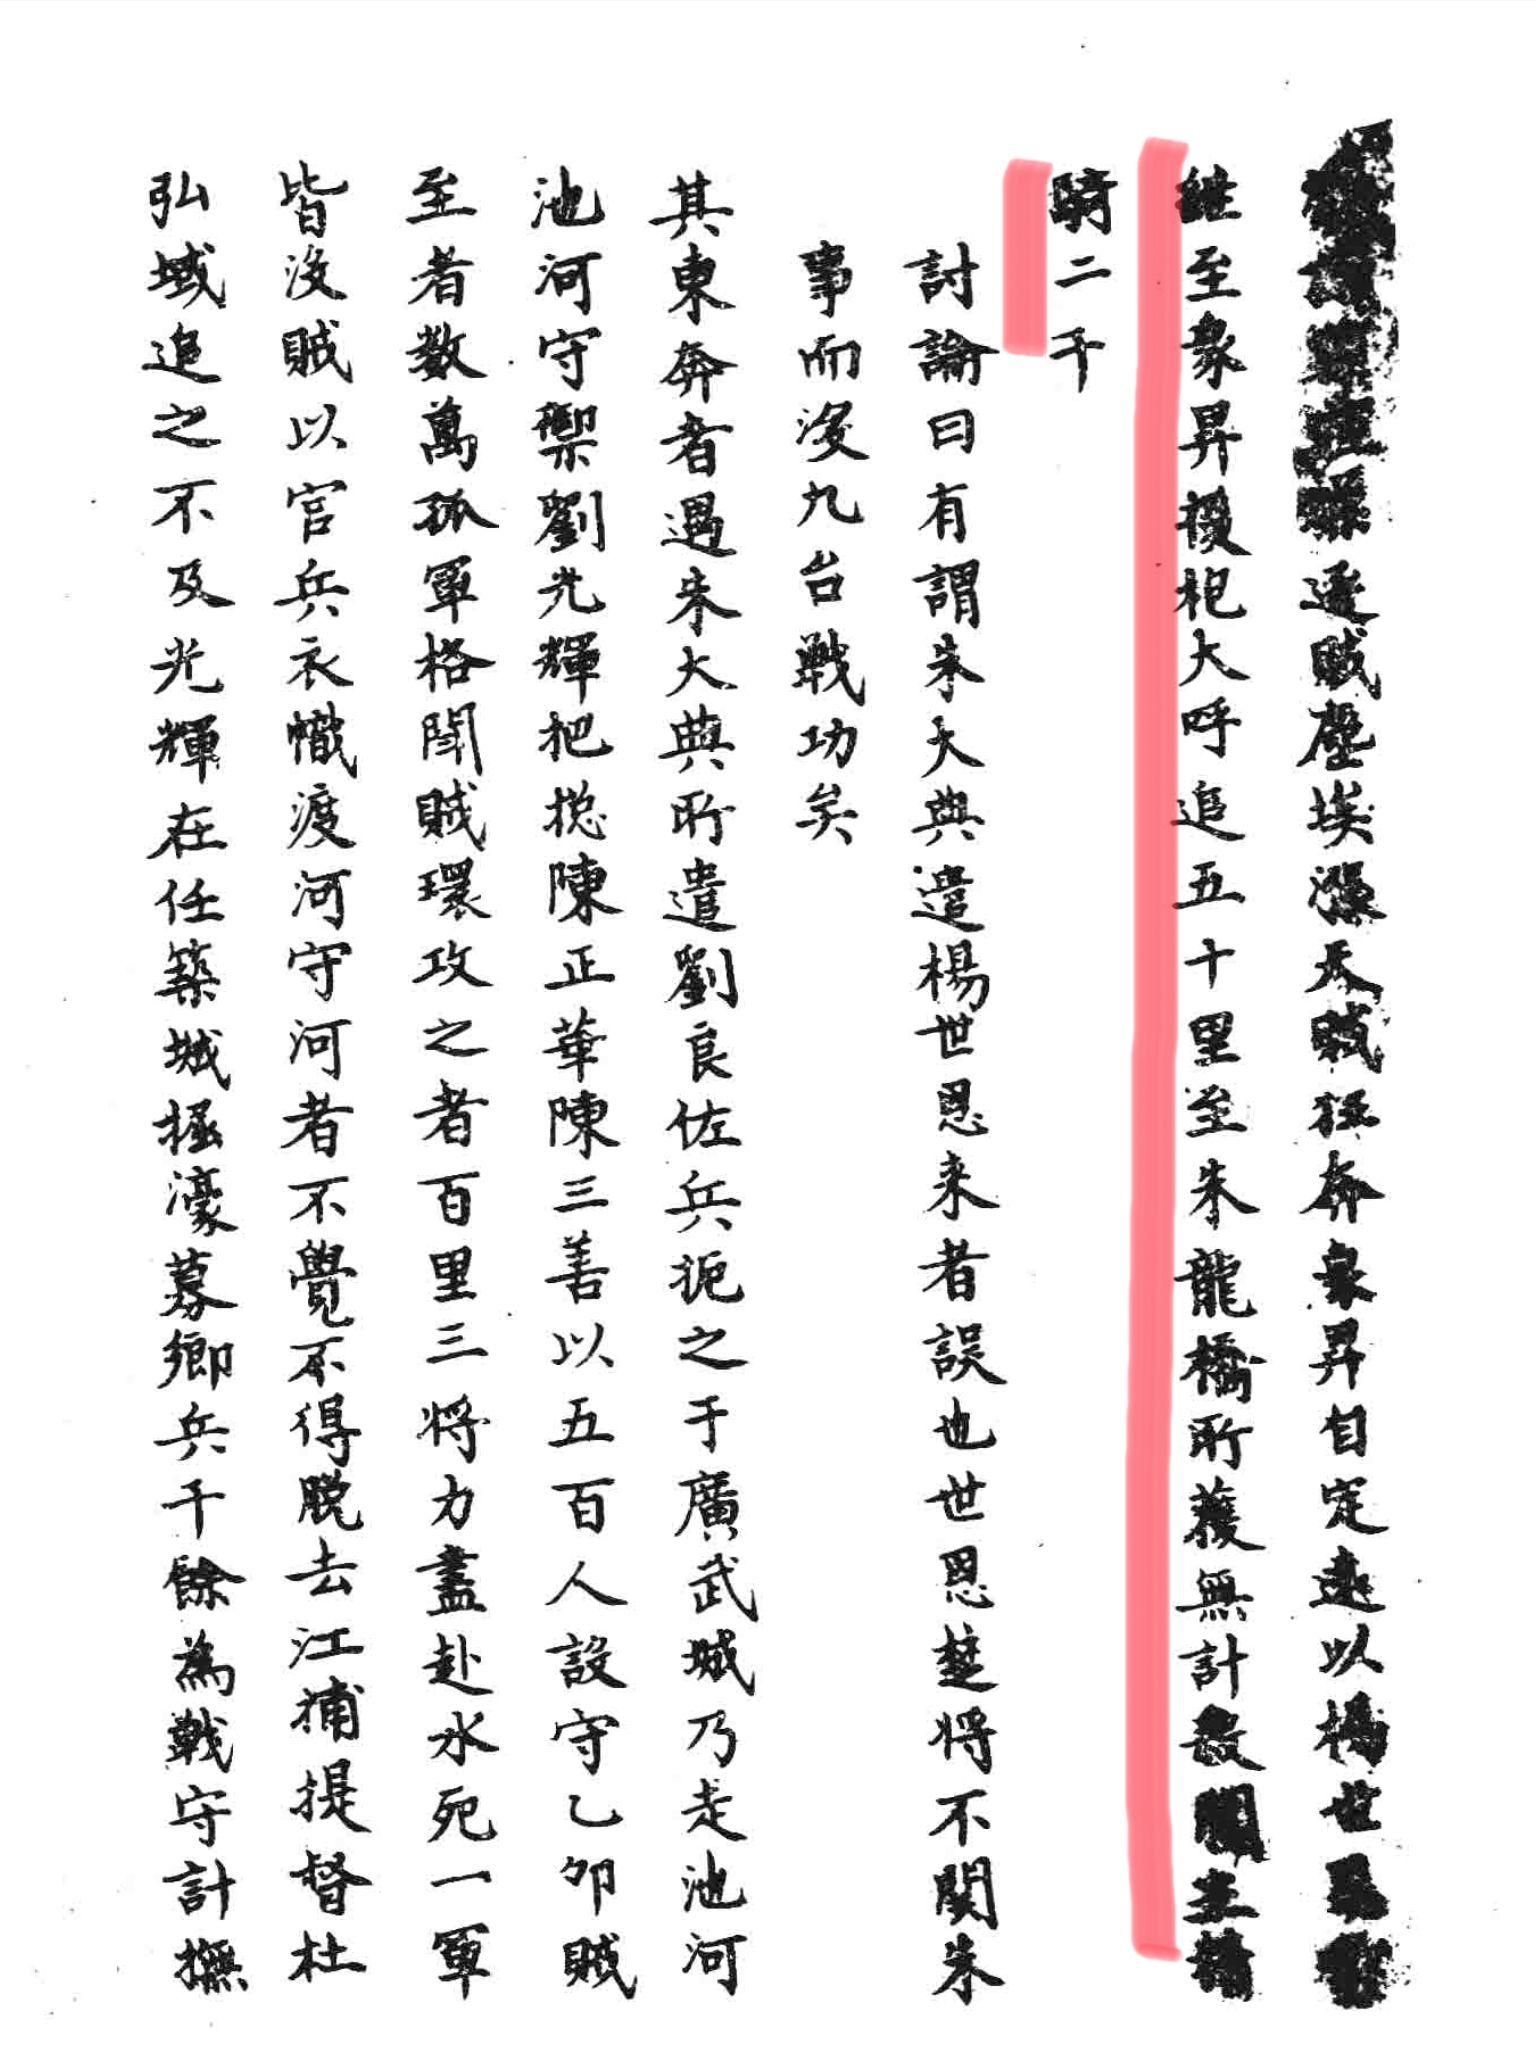 遁賊塵埃漲天賊狂奔象昇自定遠以楊世恩
継至象昇援枹大呼追五十里至朱龍橋所獲無計數闖主精
騎二千
討論曰有謂朱大典遣楊世恩来者誤也世恩楚将不関朱
事而没九台戰功矣
其東奔者遇朱大典所遣劉良佐兵扼之于廣武城乃走池河
池河守禦劉光輝把摠陳正華陳三善以五百人設守乙卯賊
至者数萬孤軍格鬪賊環攻之者百里三将力盡赴水死一軍
皆没賊以官兵衣幟渡河守河者不覺不得脱去江捕提督杜
弘域追之不及光輝在任築城掘濠募鄉兵千餘為戰守計撫